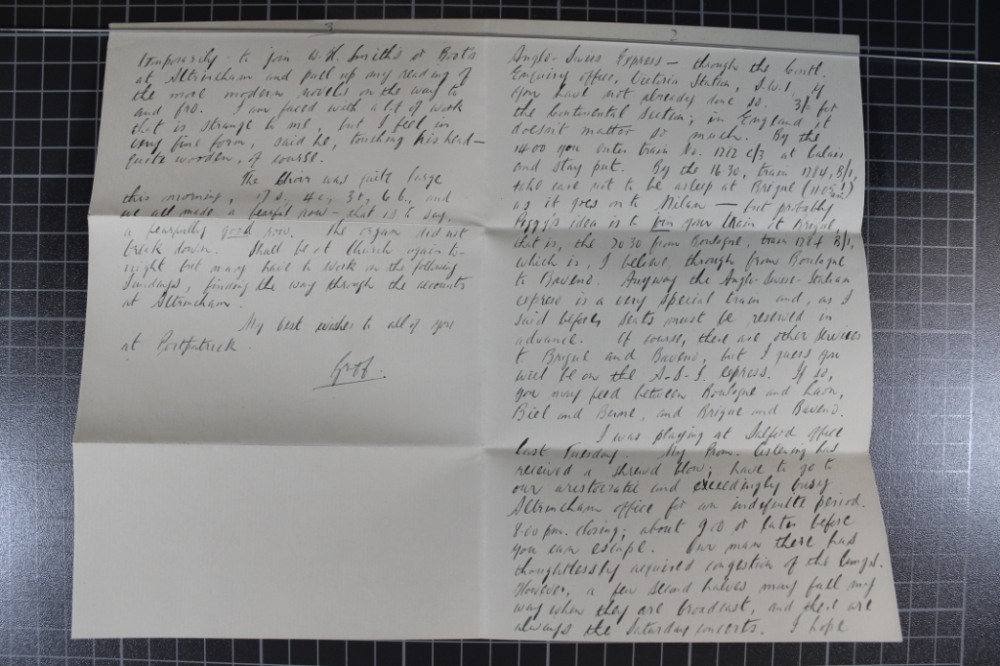 2
Anglo-Swiss Express — through the Contl.
Enquiry Office, Victoria Station, S.W.1, if
you have not already done so. 3/- for
the Continental Section; in England it
doesn't matter so much. By the
14.00 you enter train No. 1212 c/3 at Calais
and stay put. By the 16.30, train 1784, B/1,
take care not to be asleep at Brigue
as it goes on to Milan — but probably
Peggy's idea is to join your train at Brigue,
that is, the 20.30 from Boulogne, train 1784 B/1,
which is, I believe, through from Boulogne
to Baveno. Anyway the Anglo-Swiss-Italian
express is a very special train and, as I
said before, seats must be reserved in
advance. Of course, there are other services
to Brigue and Baveno, but I guess you
will be on the A-S-I express. If so,
you may feed between Boulogne and Laon,
Biel and Berne, and Brigue and Baveno.
I was playing at Salford Office
last Tuesday. My Prom. listening has
received a shrewd blow; have to go to
our aristocratic and exceedingly busy
Altrincham office for an indefinite period.
8.00 pm. closing; about 9.0 or later before
you can escape. Our man there has
thoughtlessly acquired congestion of the lungs.
However, a few second halves may fall my
way when they are broadcast, and there are
always the Saturday concerts. I hope
3
temporarily - to join W.H. Smith's or Boots
at Altrincham and pull up my reading of
the more modern novels on the way to
and fro. I am faced with a lot of work
that is strange to me, but I feel in
very fine form, said he, touching his head —
quite wooden, of course.
The Choir was quite large
this morning, 4c, 3t, 6b, and
we all made a fearful row - that is to say,
a fearfully good row. The organ did not
break down. Shall be at Church again to-
night but may have to work on the following
Sundays, finding the way through the accounts
at Altrincham.
My best wishes to all of you
at Portpatrick.
Geoff.